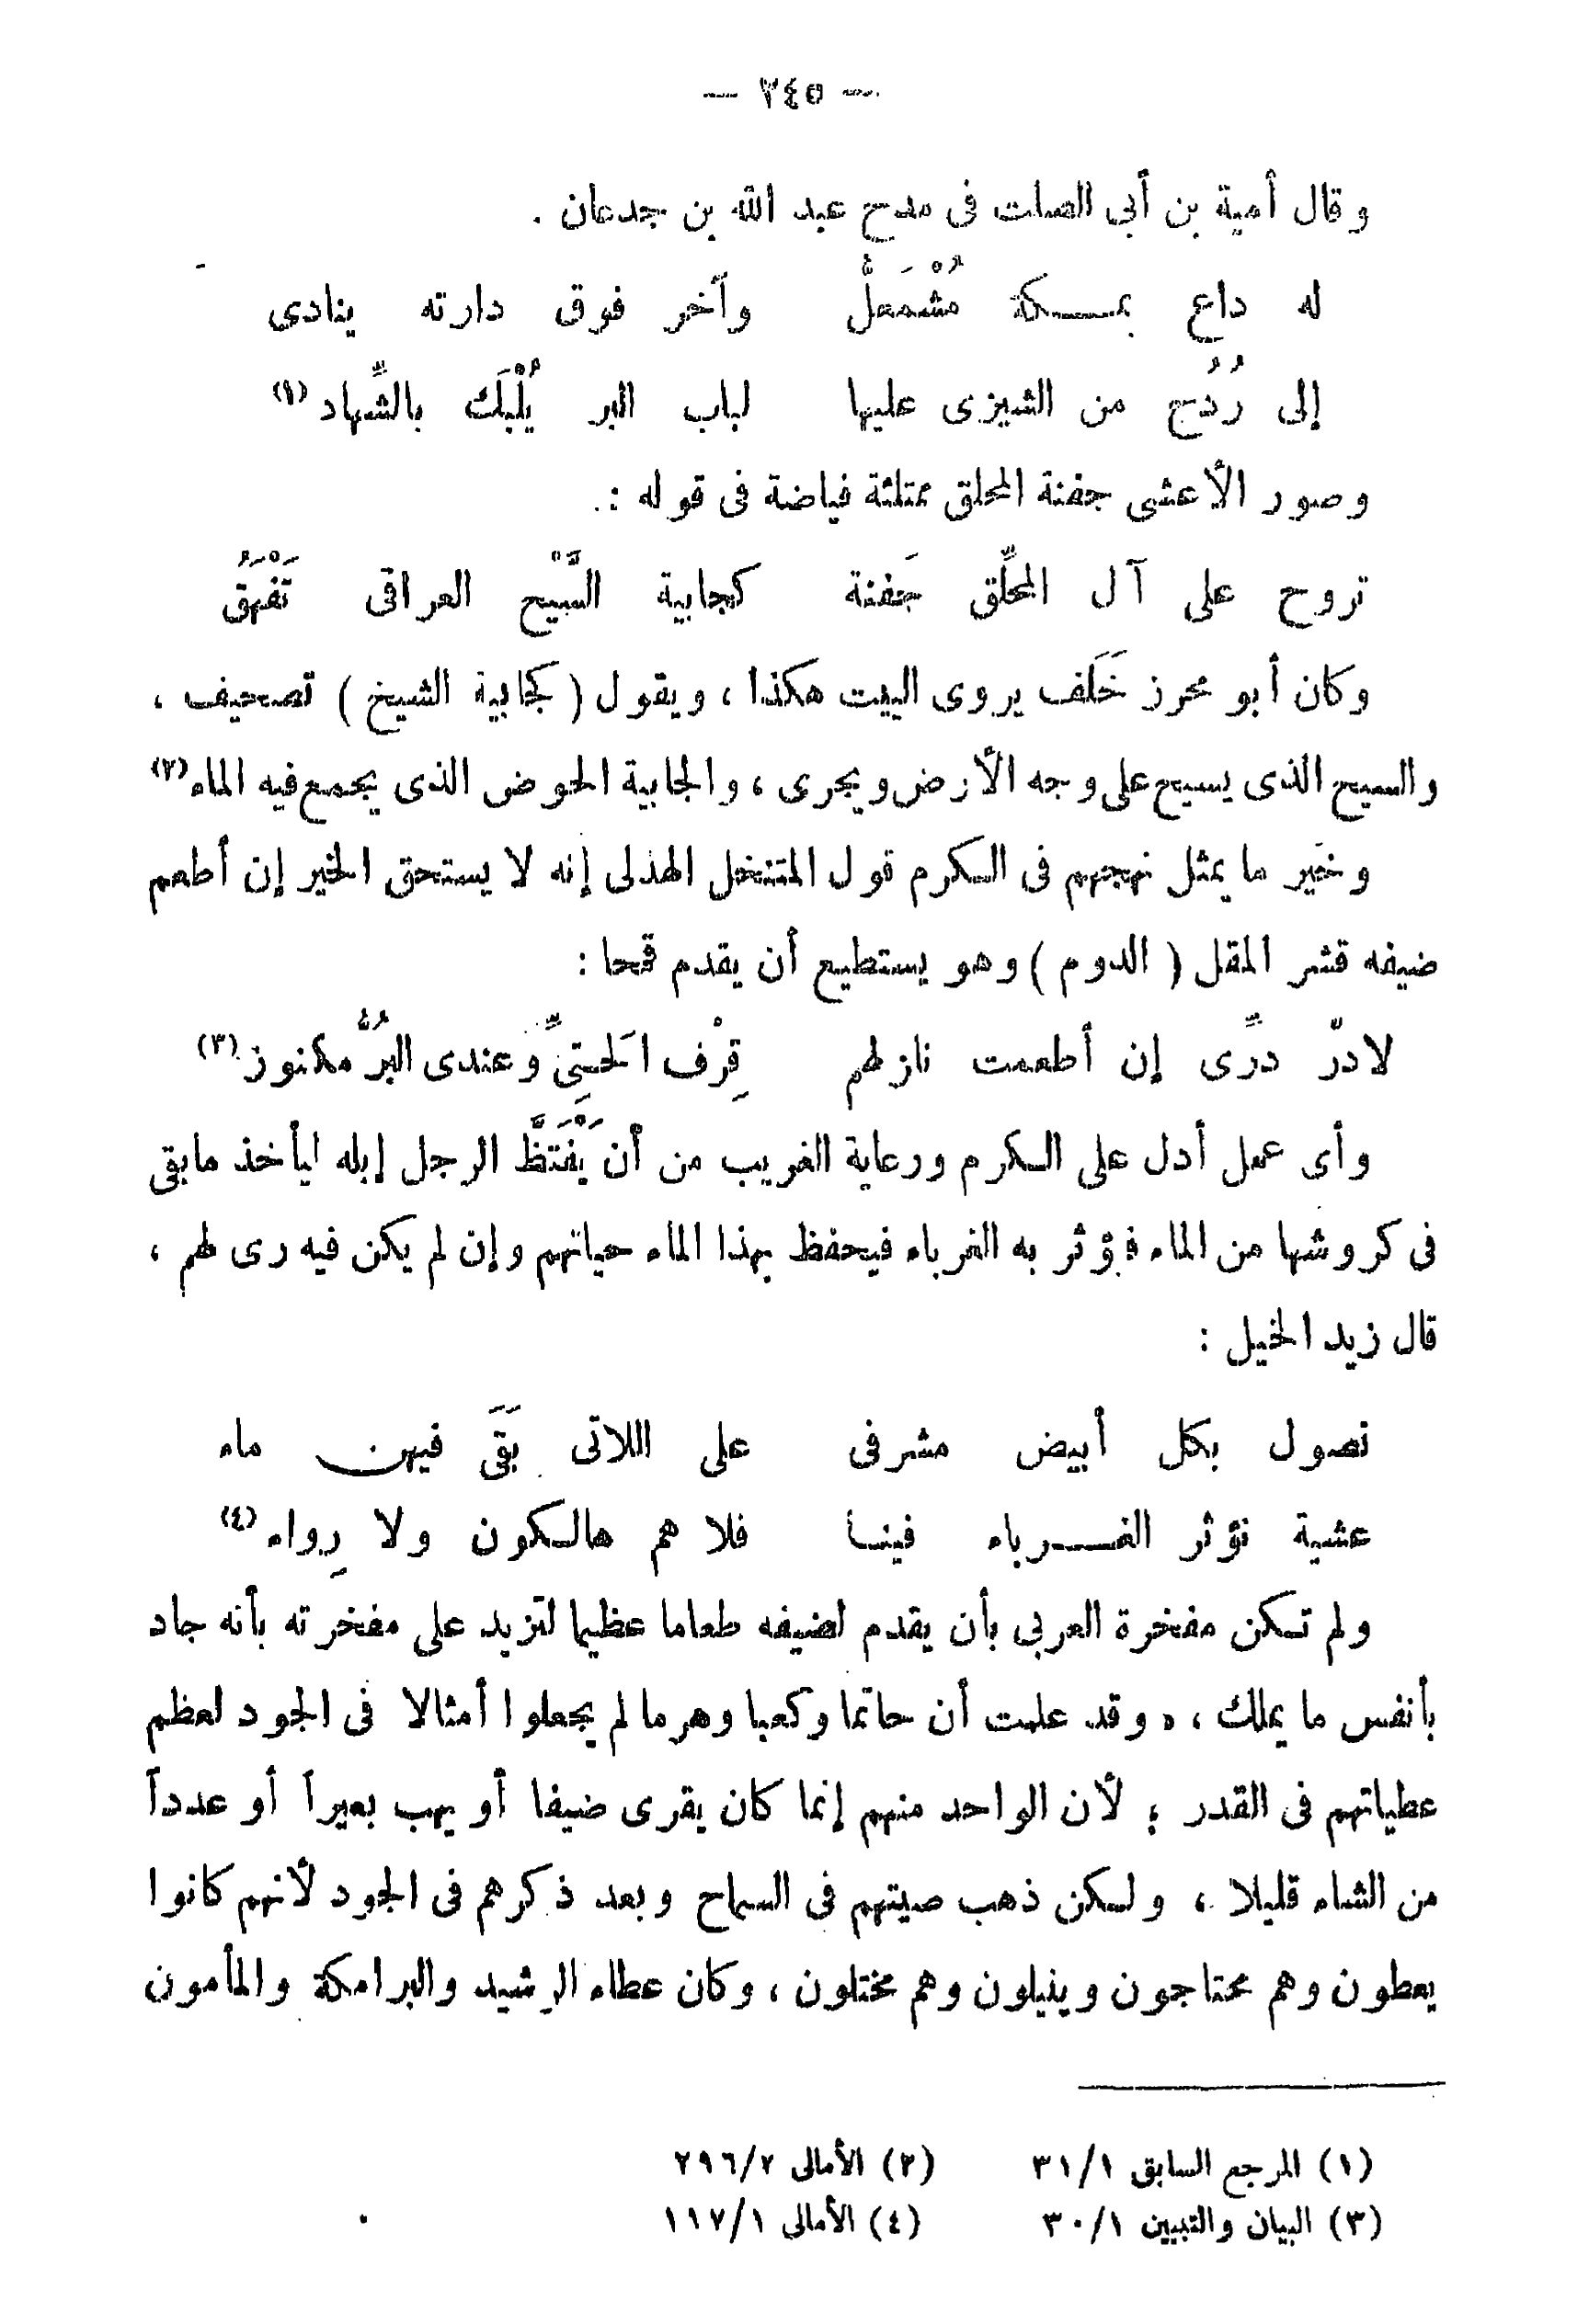 — ٢٤٥ —
وقال أمية بن أبى الصلت فى مدح عبد الله بن جدعان .
له داع بمـــكة مُشْمَعلٌّ وآخر فوق دارته ينادى
إلى رُدُح من الشيزى عليها لباب البر يُلْبَك بالشِّهاد (١)
وصور الأعشى جفنة المحلق ممتلئة فياضة فى قوله :
تروح على آل المحلِّق جَفنة كجابية السَّيْح العراقى تَفْهَقُ
وكان أبو محرز خَلَف يروى البيت هكذا ، ويقول ( كجابية الشيخ ) تصحيف ،
والسيح الذى يسيح على وجه الأرض ويجرى ، والجابية الحوض الذى يجمع فيه الماء (٢)
وخير ما يمثل نهجهم فى الكرم قول المتنخل الهذلى إنه لا يستحق الخير إن أطعم
ضيفه قشر المقل ( الدوم ) وهو يستطيع أن يقدم قمحا :
لادرّ درِّى إن أطعمت نازلهم قِرْف الَحتِىِّ وعندى البُرُّ مكنوز (٣)
وأى عمل أدل على الكرم ورعاية الغريب من أن يَفْتَظَّ الرجل إبله ليأخذ مابقى
فى كروشها من الماء فيؤثر به الغرباء فيحفظ بهذا الماء حياتهم وإن لم يكن فيه رى لهم ،
قال زيد الخيل :
نصول بكل أبيض مشرفى على اللاتى بَقَى فيهن ماء
عشية نؤثر الغـــرباء فينا فلا هم هالكون ولا رِواء (٤)
ولم تكن مفخرة العربى بأن يقدم لضيفه طعاما عظيما لتزيد على مفخرته بأنه جاد
بأنفس ما يملك ، « وقد علمت أن حاتما وكعبا وهرما لم يجعلوا أمثالا فى الجود لعظم
عطياتهم فى القدر ؛ لأن الواحد منهم إنما كان يقرى ضيفا أو يهب بعيراً أو عدداً
من الشاء قليلا ، ولكن ذهب صيتهم فى السماح وبعد ذكرهم فى الجود لأنهم كانوا
يعطون وهم محتاجون وينيلون وهم مختلون ، وكان عطاء الرشيد والبرامكة والمأمون
(١) المرجع السابق ٣١/١ (٢) الأمالى ٢٩٦/٢
(٣) البيان والتبيين ٣٠/١ (٤) الأمالى ١١٧/١